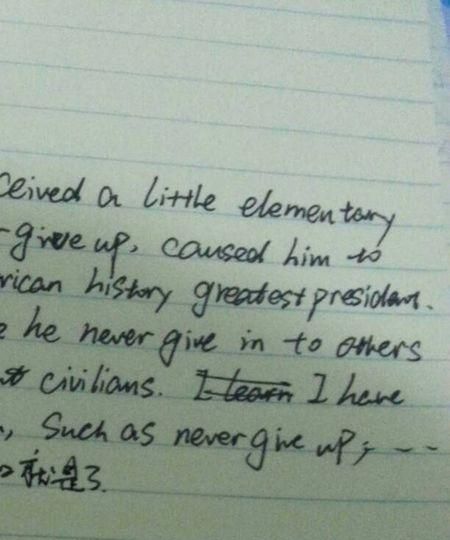 ceived a little elementary
give up, caused him to
rican history greatest president.
he never give in to others
civilians. I learn I have
, Such as never give up, --
就是了